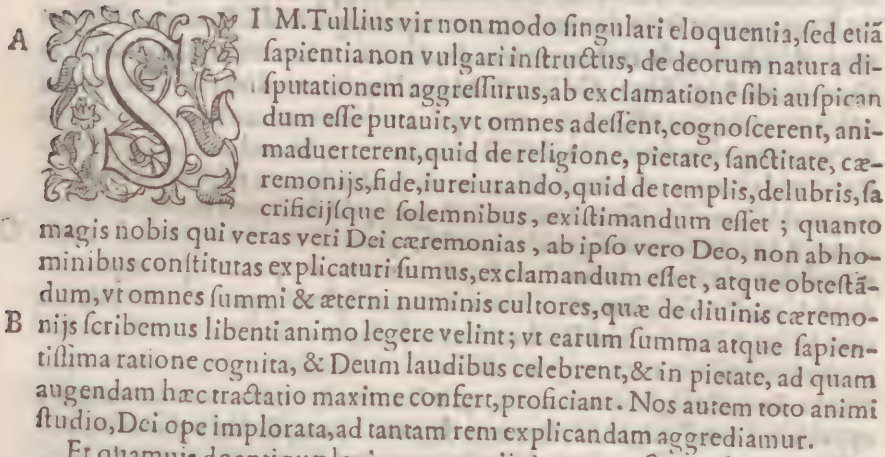 A SI M.Tullius vir non modo ſingulari eloquentia, ſed etiã
ſapientia non vulgari inſtructus, de deorum natura di-
ſputationem aggreſſurus, ab exclamatione ſibi auſpican
dum eſſe putauit, vt omnes adeſſent, cognoſcerent, ani-
maduerterent, quid de religione, pietate, ſanctitate, cæ-
remonijs, fide, iureiurando, quid de templis, delubris, ſa
crificijſque ſolemnibus, exiſtimandum eſſet ; quanto
magis nobis qui veras veri Dei cæremonias, ab ipſo vero Deo, non ab ho-
minibus conſtitutas explicaturi ſumus, exclamandum eſſet, atque obteſtã-
dum, vt omnes ſummi & æterni numinis cultores, quæ de diuinis cæremo-
B nijs ſcribemus libenti animo legere velint; vt earum ſumma atque ſapien-
tiſſima ratione cognita, & Deum laudibus celebrent, & in pietate, ad quam
augendam hæc tractatio maxime confert, proficiant. Nos autem toto animi
ſtudio, Dei ope implorata, ad tantam rem explicandam aggrediamur.
Et quamuis